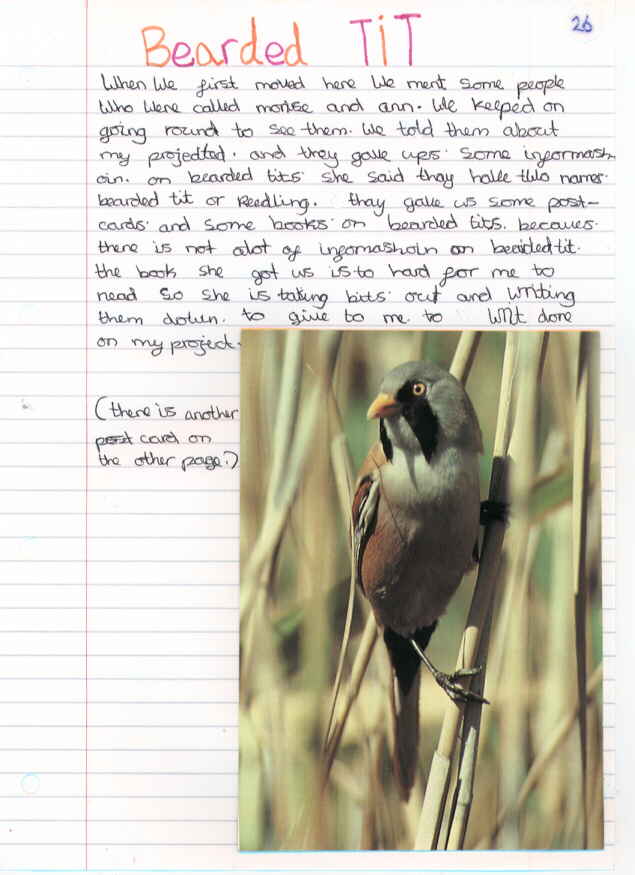 Bearded TiT
26
When We first moved here We ment some people
Who Were called morise and ann. We keeped on
going round to see them. We told them about
my projedtad. and they gave ups some informash
oin. on bearded tits. she said thay have two names.
bearded tit or Reedling. thay gave us some post-
cards. and some books on bearded tits. becaues.
there is not alot of infomashoin on beardedtit.
the book she got us is to hard for me to
read So she is taking bits out and Writing
them down. to give to me. to done
on my project.
(there is another
post card on
the other page.)